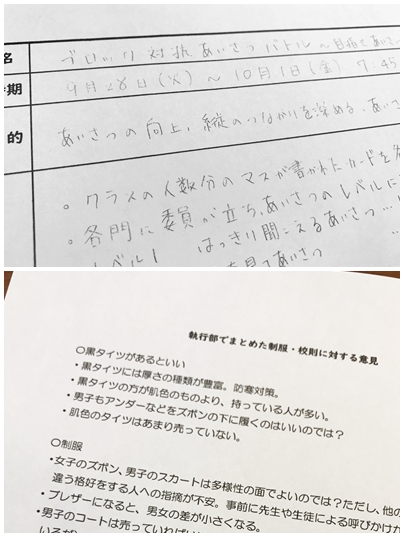 名 ブロック対抗あいさつバトル〜目指せあいさ
期 9月28日(火)〜10月1日(金) 7:45
的 あいさつの向上、縦のつながりを深める、あいさ
・クラスの人数分のマスが書かれたカードを
・各門に委員が立ち、あいさつのレベルに
レベル1 はっきり聞こえるあいさつ…
を見てあいさつ
執行部でまとめた制服・校則に対する意見
〇黒タイツがあるといい
・黒タイツには厚さの種類が豊富。防寒対策。
・黒タイツの方が肌色のものより、持っている人が多い。
・男子もアンダーなどをズボンの下に履くのはいいのでは?
・肌色のタイツはあまり売っていない。
〇制服
・女子のズボン、男子のスカートは多様性の面でよいのでは?ただし、他の
違う格好をする人への指摘が不安。事前に先生や生徒による呼びかけが
・ブレザーになると、男女の差が小さくなる。
・男子のコートは売っていれば